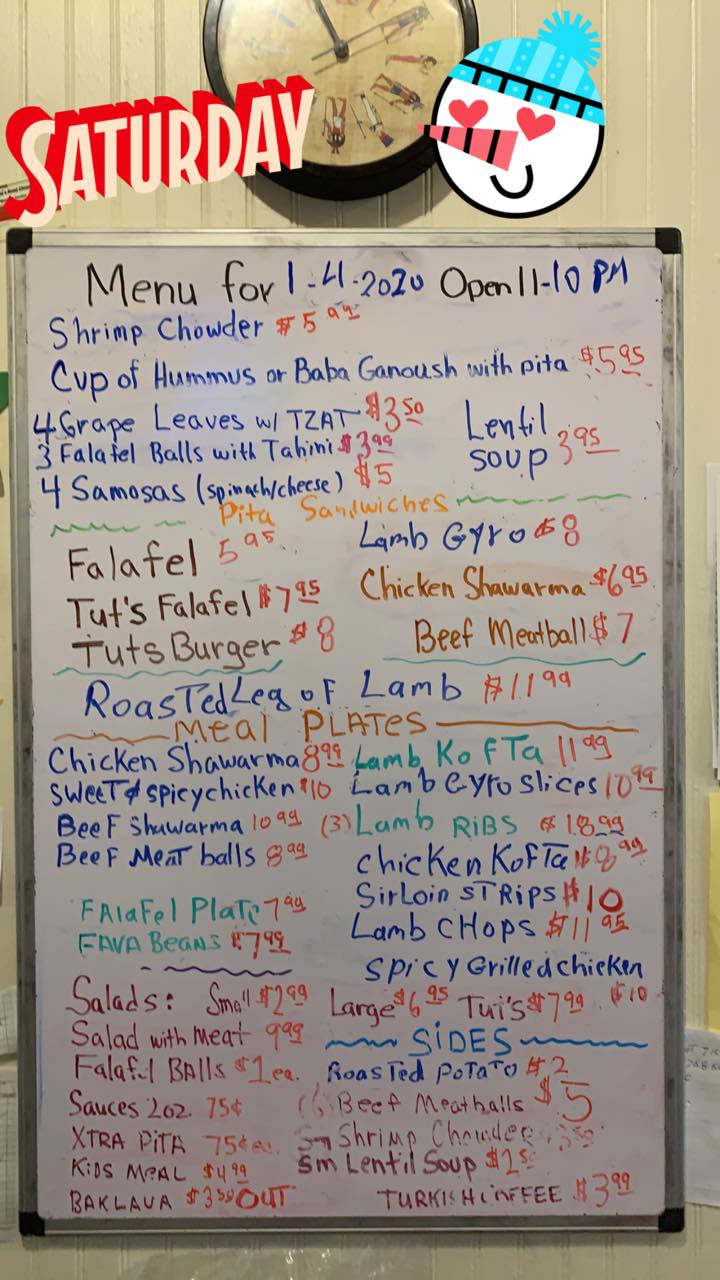 SATURDAY
Menu for 1-4-2020 Open 11-10 PM
Shrimp Chowder $5.99
Cup of Hummus or Baba Ganoush with pita $5.95
4 Grape Leaves w/ TZAT $3.50
3 Falafel Balls with Tahini $3.99
Lentil soup 3.95
4 Samosas (spinach/cheese) $5
Pita Sandwiches
Falafel 5.95
Lamb Gyro $8
Tut's Falafel $7.95
Chicken Shawarma $6.95
Tuts Burger $8
Beef Meatball $7
Roasted Leg of Lamb $11.99
Meal PLATES
Chicken Shawarma 8.99
Lamb KofTa 11.99
SWEET & spicy chicken $10
Lamb Gyro slices 10.99
Beef Shawarma 10.99
(3) Lamb RiBS $18.99
Beef Meat balls 8.99
chicken KofTa $8.99
SirLoin STRips $10
FAlaFel PlaTe 7.99
Lamb CHops $11.95
FAVA BeanS $7.99
SpicY Grilled chicken $10
Salads: Small $2.99 Large $6.95 Tut's $7.99
Salad with meat 9.99
SiDES
Falafel BAlls $1 ea.
RoasTed PoTaTo $2
Sauces 2oz 75¢
(6) Beef Meatballs $5
XTRA PiTA 75¢ ea.
Sm Shrimp Chowder
KiDS MeAL $4.99
Sm Lentil Soup $2.50
BAKLAVA $3.50 OUT
TURKISH COFFEE $3.99